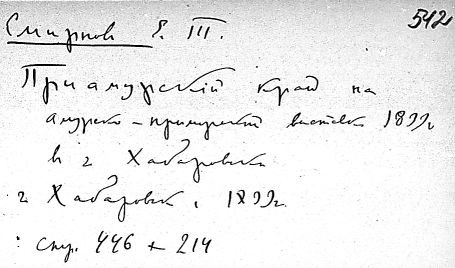 542
Смирнов Е. Т.
Приамурский край на
амурско-приморской выставке 1899г
в г Хабаровске
г Хабаровск, 1899г.
стр. 446 + 214